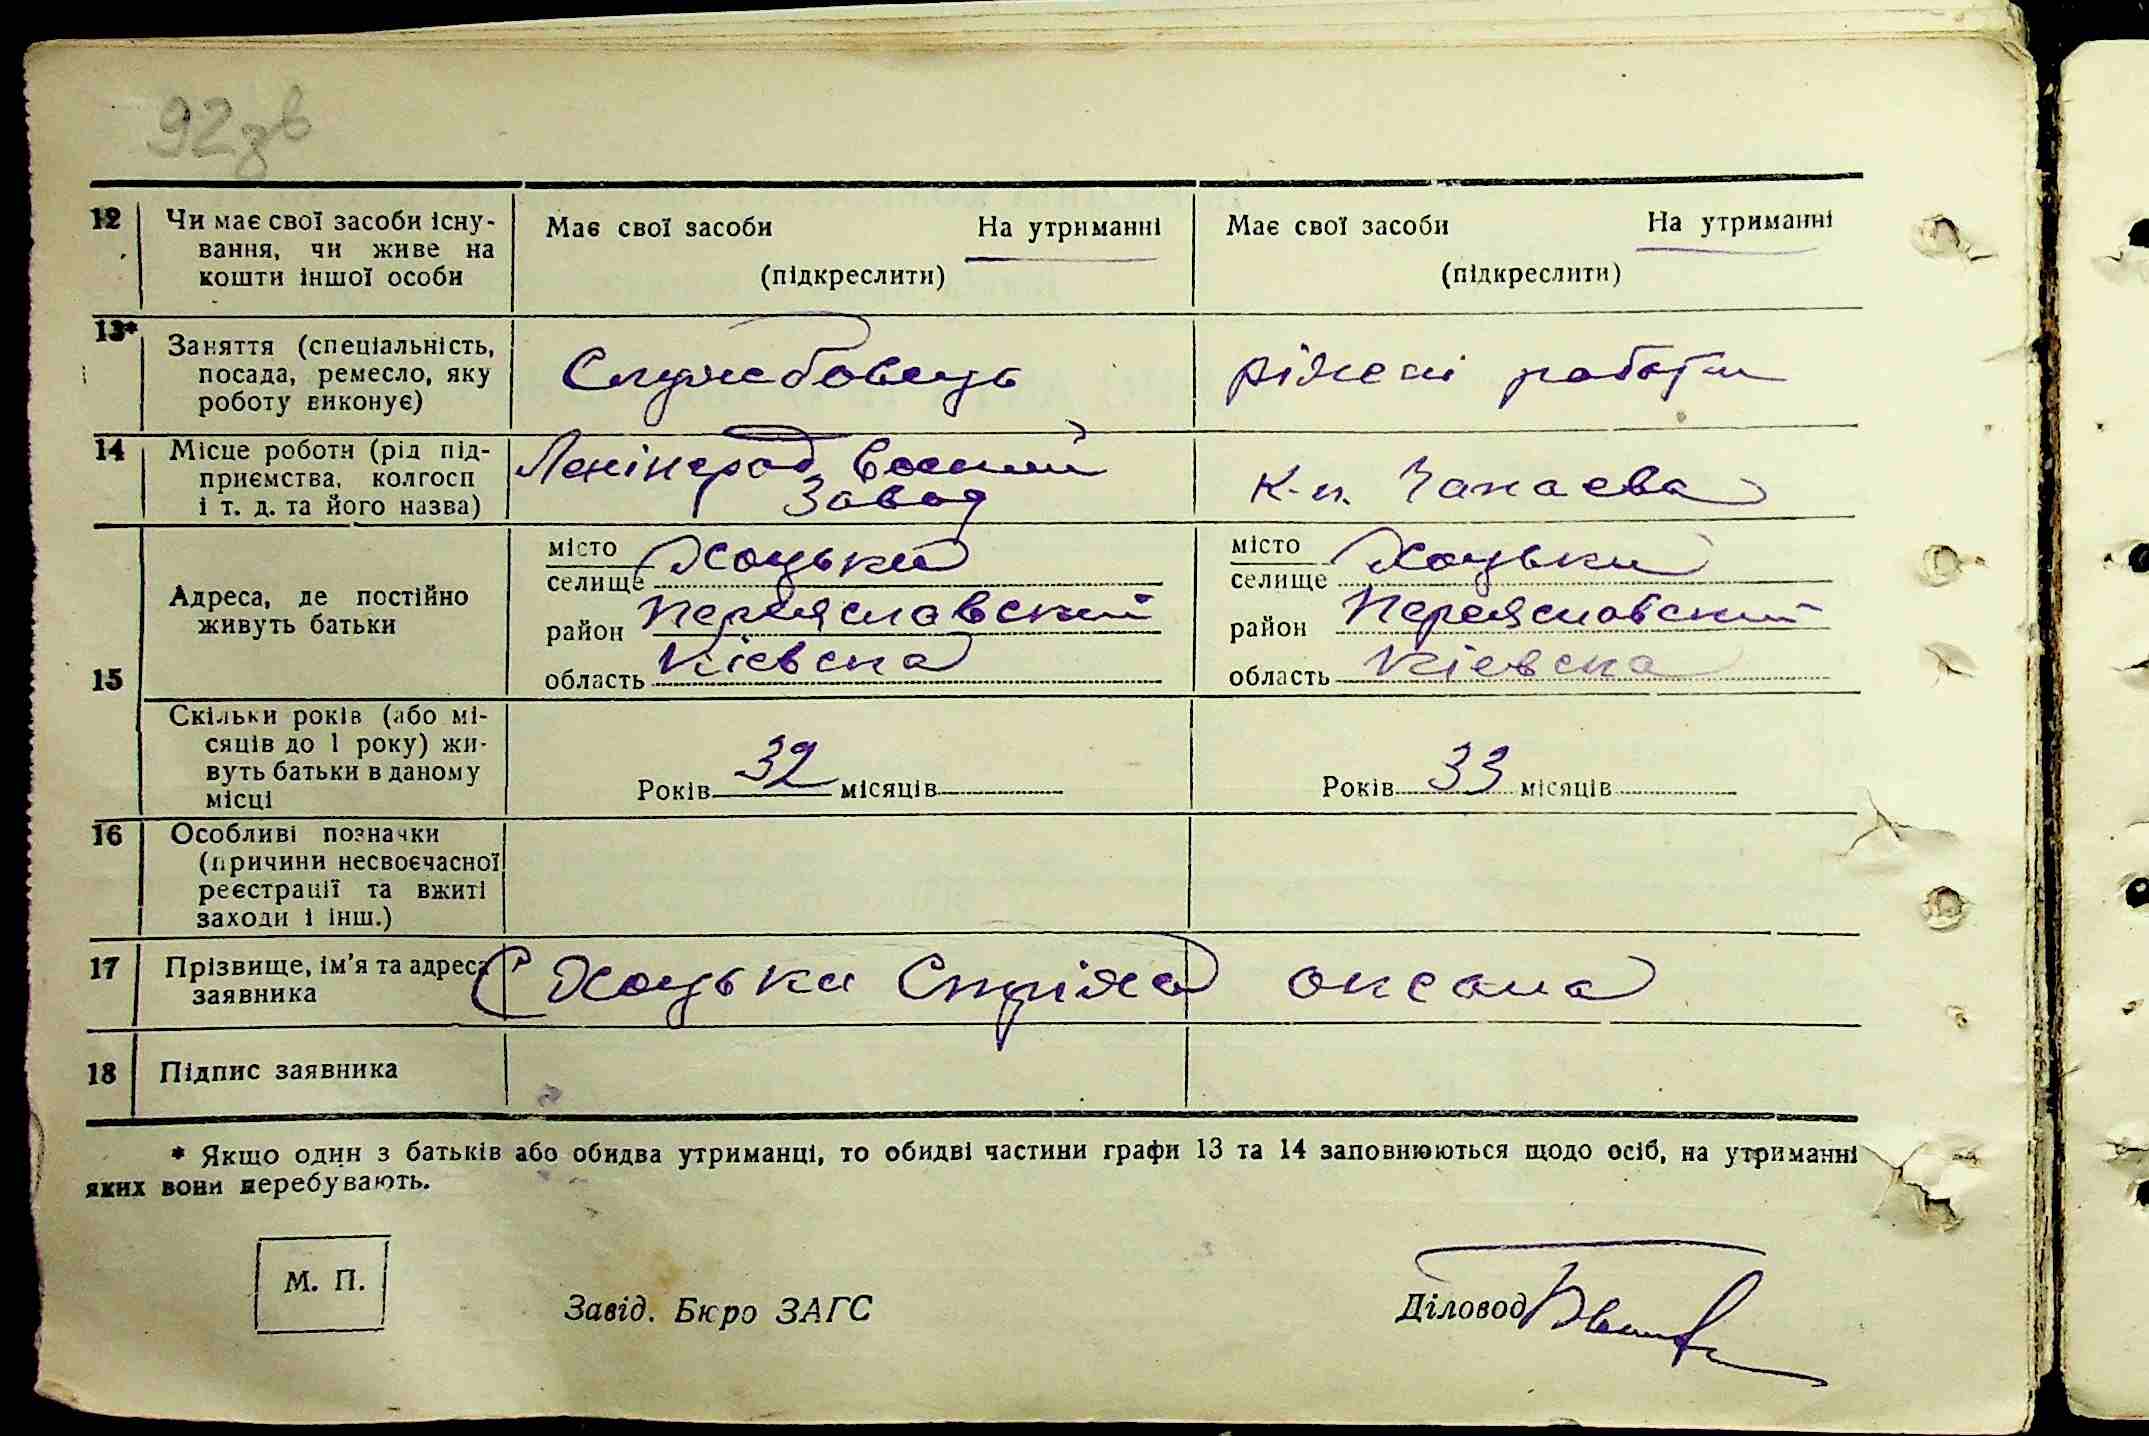 92зв
12 Чи має свої засоби існу- Має свої засоби На утриманні Має свої засоби На утриманні
вання, чи живе на
кошти іншої особи (підкреслити) (підкреслити)
13* Заняття (спеціальність,
посада, ремесло, яку Службовець різні роботи
роботу виконує)
14 Місце роботи (рід під- Ленінград Воєний
приємства, колгосп Завод к-п. Чапаєва
і т. д. та його назва)
місто Хоцьки місто Хоцьки
селище селище
Адреса, де постійно район Переяславский район Переяславский
живуть батьки
15 область Кієвска область Кієвска
Скільки років (або мі-
сяців до 1 року) жи-
вуть батьки в даному Років 32 місяців Років 33 місяців
місці
16 Особливі позначки
(причини несвоєчасної
реєстрації та вжиті
заходи і інш.)
17 Прізвище, ім'я та адреса С Хоцьки Стріха Оксана
заявника
18 Підпис заявника
* Якщо один з батьків або обидва утриманці, то обидві частини графи 13 та 14 заповнюються щодо осіб, на утриманні
яких вони перебувають.
М. П.
Завід. Бюро ЗАГС Діловод